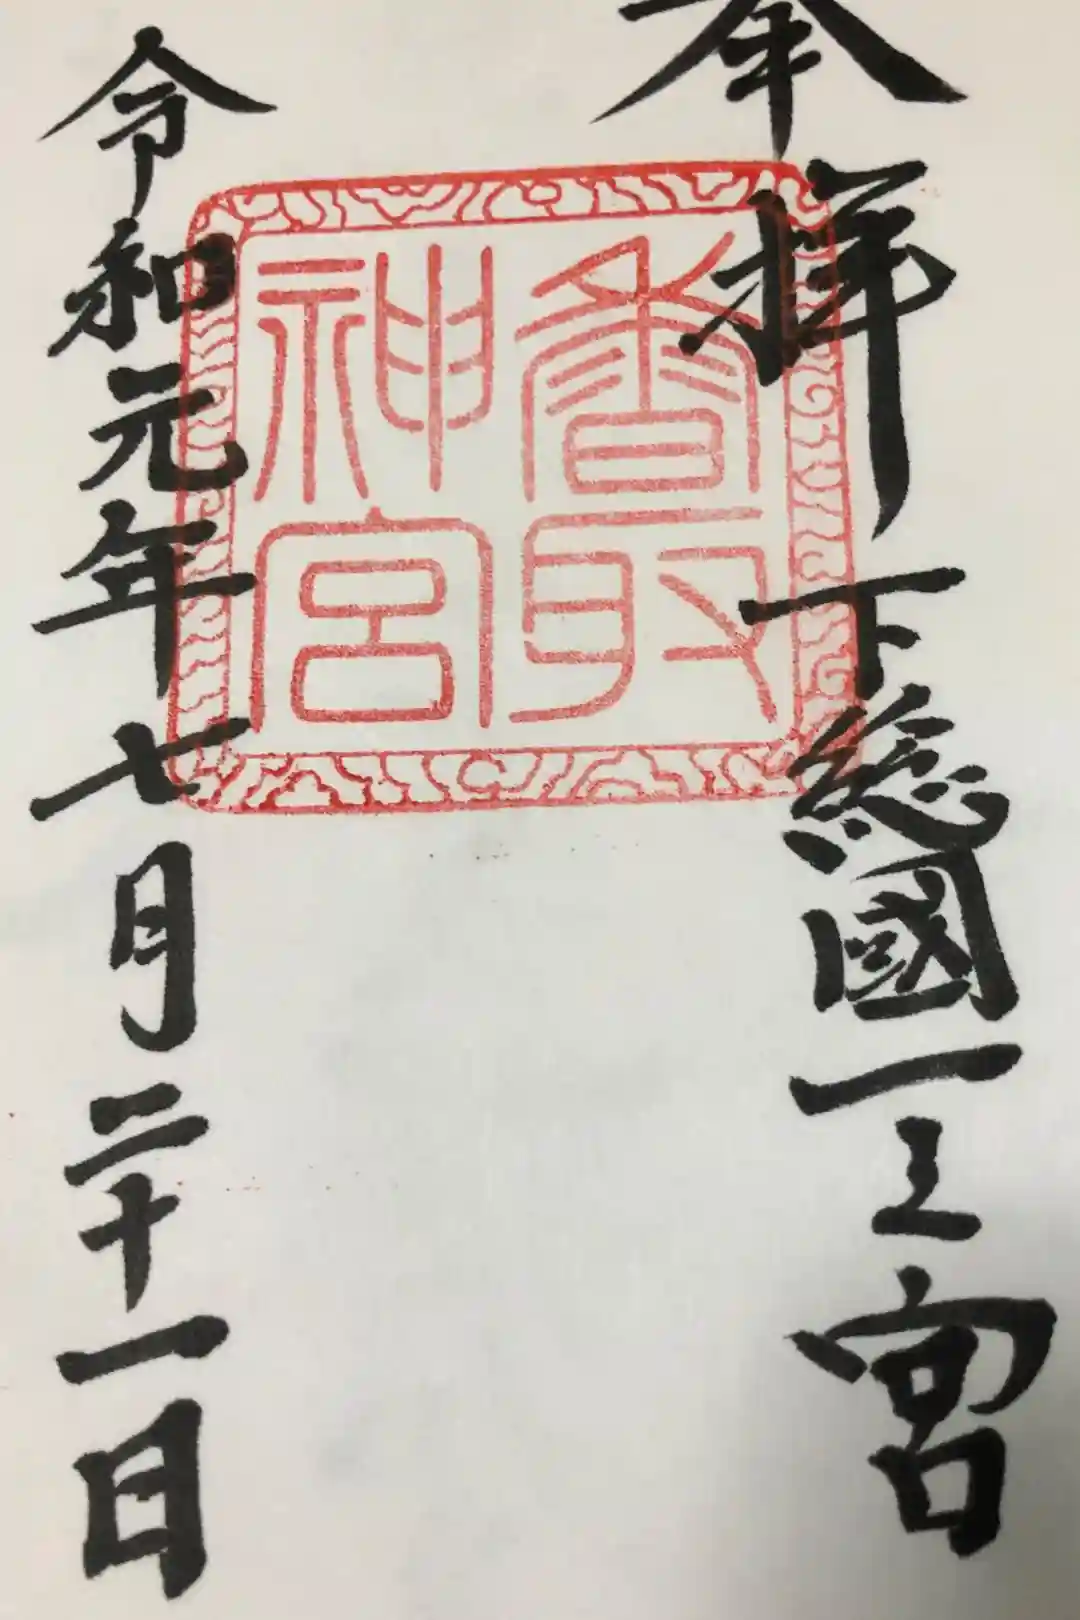 奉拝
下総國一之宮
香取
神宮
令和元年七月二十一日